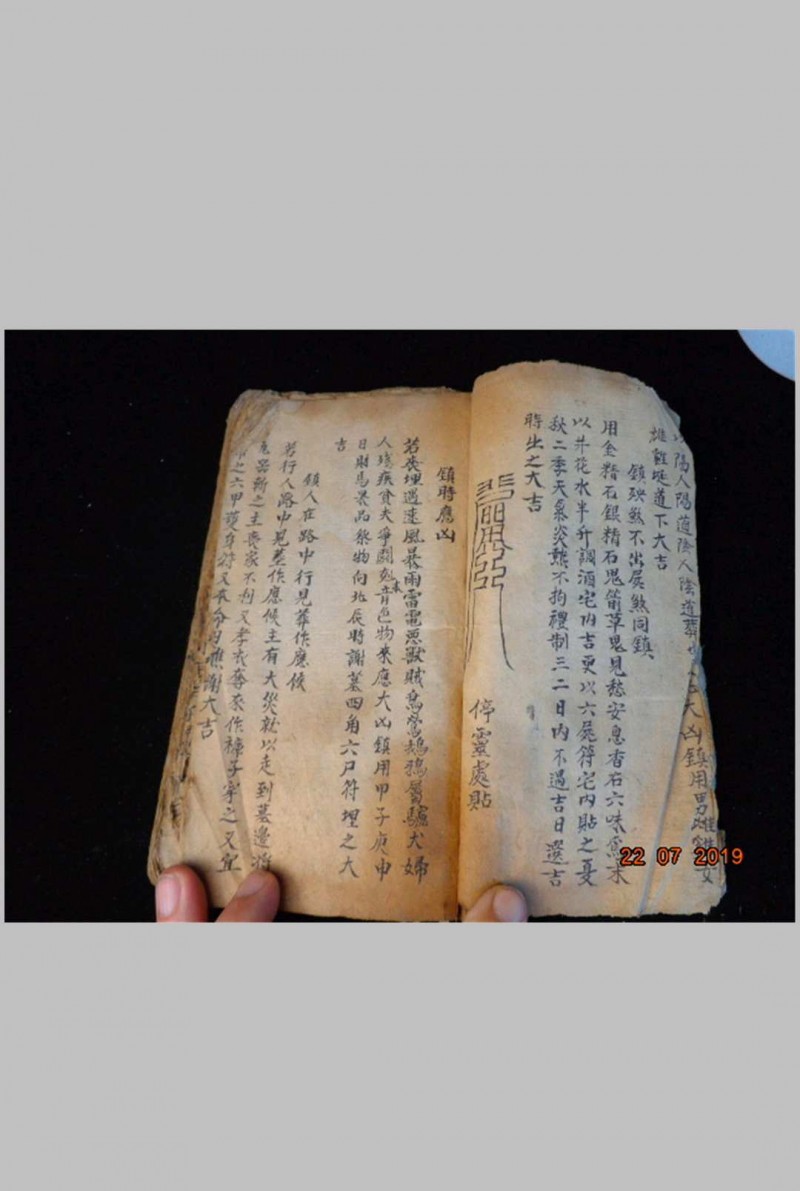 以陽人陽道陰人陰道葬 大凶鎮用男 雄雞女
雄雞埏道下大吉
鎮殃煞不出屍煞同鎮
用金精石銀精石鬼箭草鬼見愁安息香石六味為末
以井花水半升調酒宅內吉更以六屍符宅內貼之夏
秋二季天氣炎熱不拘禮制三二日內不過吉日選吉
時出之大吉
停靈處貼
鎮時應凶
若喪埋遇速風暴雨雷電惡獸賊鳥鶯鵲鴉屬驢犬婦
人殘疾貧夫爭鬪 音色物來應大凶鎮用甲子庚申
日財馬果品祭物向北辰時謝墓四角六尸符埋之大
吉
鎮人在路中行見葬作應候
若行人路中見墓作應候主有大災就以走到墓邊
之主喪家不利又孝衣奪來作褲子穿之又宜
之六甲 身符又本命日醮謝大吉
22 07 2019